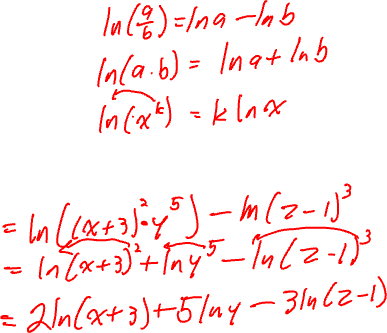 ln(a/b) = ln a − ln b
ln(a·b) = ln a + ln b
ln(x^k) = k ln x
= ln((x+3)^2·y^5) − ln(z−1)^3
= ln(x+3)^2 + ln y^5 − ln(z−1)^3
= 2ln(x+3) + 5 ln y − 3 ln(z−1)